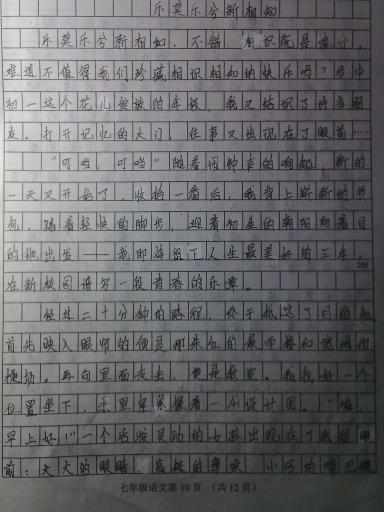 乐莫乐兮新相知
乐莫乐兮新相知,不错,相识就是缘分。
难道不值得我们珍藏相识相知的快乐吗?步中
初一这个花儿绽放的年级,我又结识了许多朋
友。打开记忆的大门,往事又出现在了眼前……
“叮当,叮当”随着闹钟声的响起,新的
一天又开始了,收拾一番后,我背上崭新的书
包,踏着轻快的脚步,迎着初生的朝阳向着目
的地出发——我即将留下人生最美好的三年,
200
在新校园谱写一段青春的乐章。
经过二十分钟的路程,终于抵达了目的地,
首先映入眼帘的便是那朱红的教学楼和宽阔的
操场。再向里面走去,便是教室。我找好一个
位置坐下,手里紧紧握着一份设计图。“嗨,
早上好!”一个活泼灵动的女孩出现在了我的眼
前:大大的眼睛,高挺的鼻梁,小巧的嘴巴
七年级语文第10页(共12页)